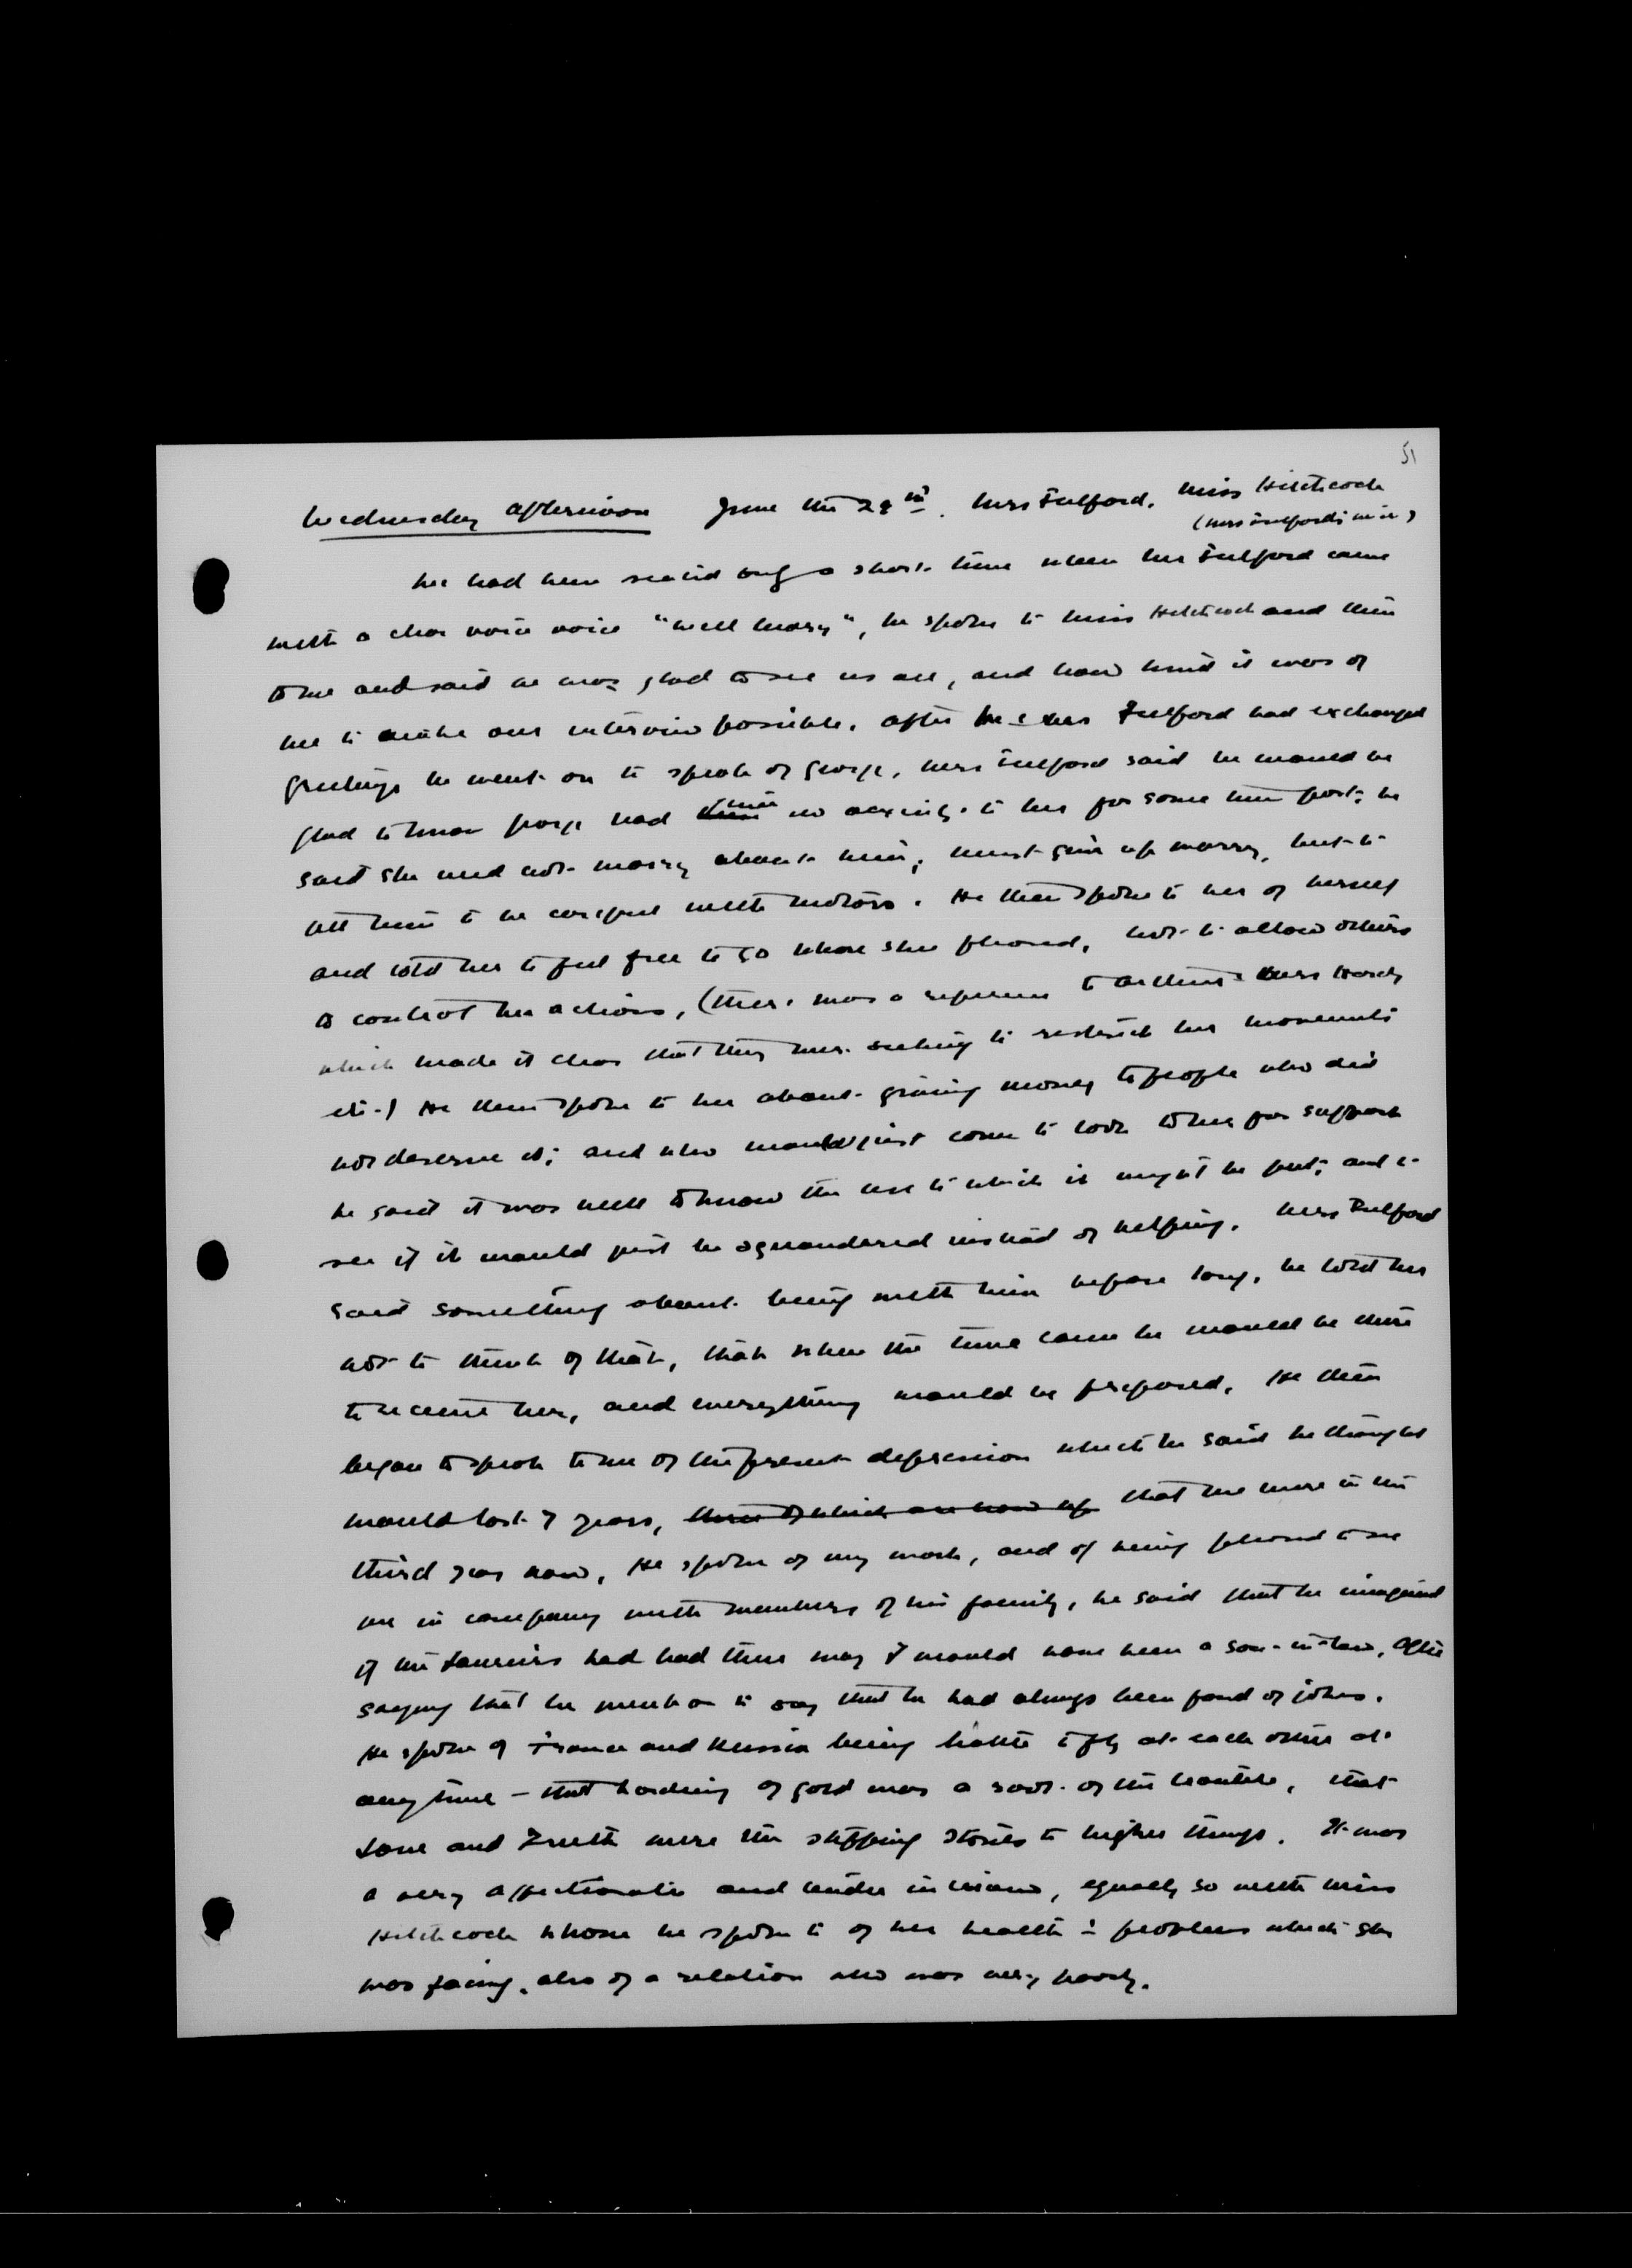 51
Wednesday afternoon June the 29th. Mrs Fulford. Miss Hitchcock
(Mrs Fulford's niece)
We had been seated only a short time when Mr Fulford came
with a clear voice voice "well Mary", he spoke to Miss Hitchcock and then
to me and said he was glad to see us all, and how kind it was of
me to make our interview possible. After he & Mrs Fulford had exchanged
greetings he went on to speak of George, Mrs Fulford said he would be
glad to know George had been no anxiety to her for some time past; he
said she need not worry about him, must give up worry, but to
tell him to be careful with motors. He then spoke to her of herself
and told her to feel free to go where she pleased, not to allow others
to control her actions, (there was a reference to Mrs Hardy
which made it clear that they were seeking to restrict her movements
etc.) He then spoke to her about giving money to people who did
not deserve it; and who would just come to look to her for support
he said it was well to know the use to which it might be put; and to
see if it would just be squandered instead of helping. Mrs Fulford
said something about being with him before long, he told her
not to think of that, that when the time came he would be there
to receive her, and everything would be prepared. He then
began to speak to me of the present depression which he said he thought
would last 7 years, three of which are now up that we were in the
third year now. He spoke of my work, and of being pleased to see
me in company with members of his family, he said that he imagined
if the Lauriers had had their way I would have been a son-in-law, after
saying that he went on to say that he had always been fond of jokes.
He spoke of France and Russia being liable to fly at each other at
any time – that hoarding of gold was a root of the trouble, that
Love and Truth were the stepping stones to higher things. It was
a very affectionate and tender interview, equally so with Miss
Hitchcock whom he spoke to of her health & problems which she
was facing, also of a relation who was very poorly.